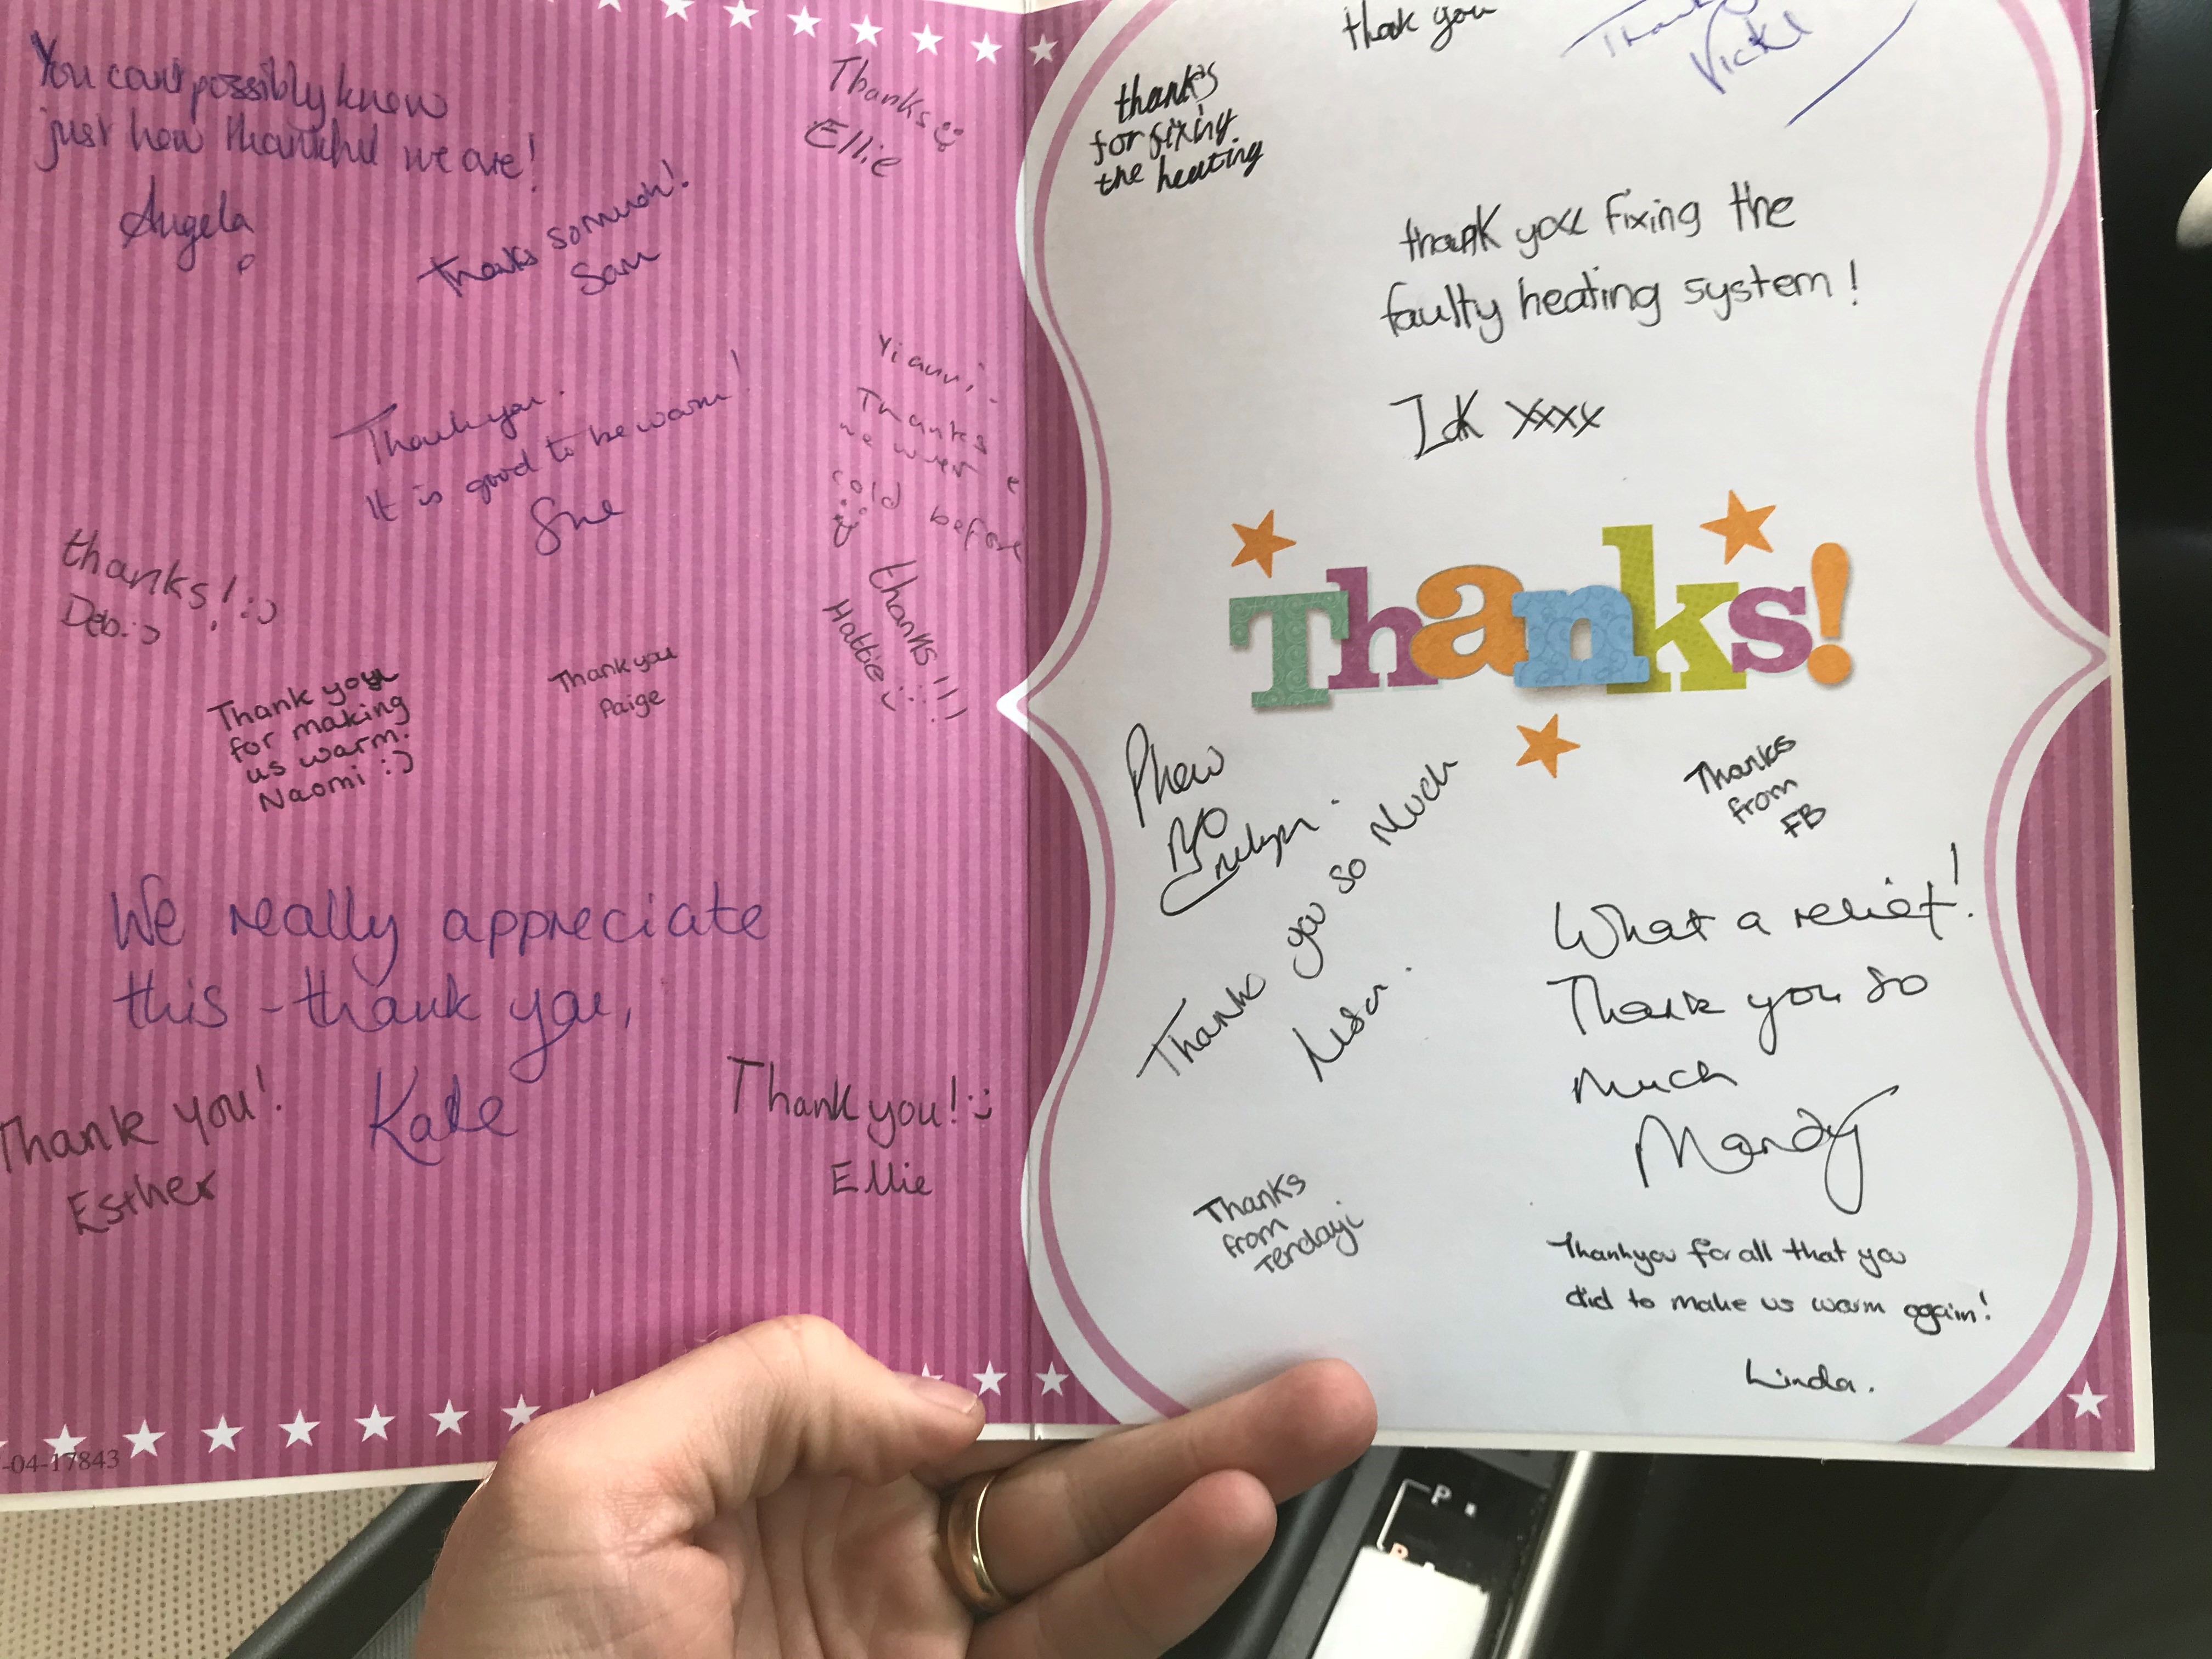 You can't possibly know
just how thankful we are!
Angela
Thanks so much!
Sam
Thanks :)
Ellie
Thank you.
It is good to be warm!
Sue
Yianni
Thanks
we were
cold before
:)
thanks! :)
Deb :)
thanks!!!
Hattie :)
Thank you
for making
us warm!
Naomi :)
Thank you
Paige
We really appreciate
this - thank you,
Kate
Thank you!
Esther
Thank you! :)
Ellie
-04-17843
thank you
Vicki
thanks
for fixing
the heating
thank you fixing the
faulty heating system!
xxxx
Thanks!
Phew
Thanks
from
FB
Thank you so Much
Lisa.
What a relief!
Thank you so
much
Mandy
Thanks
from
Tendayi
Thankyou for all that you
did to make us warm again!
Linda.
P
R